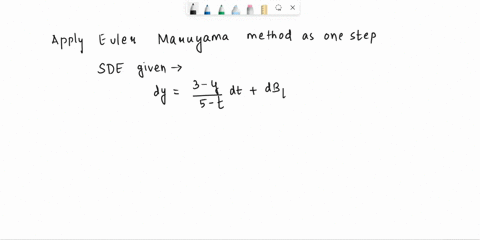 Apply Euler Maruyama method as one step
SDE given →
dy = \frac{3-y}{5-t} dt + dB_t